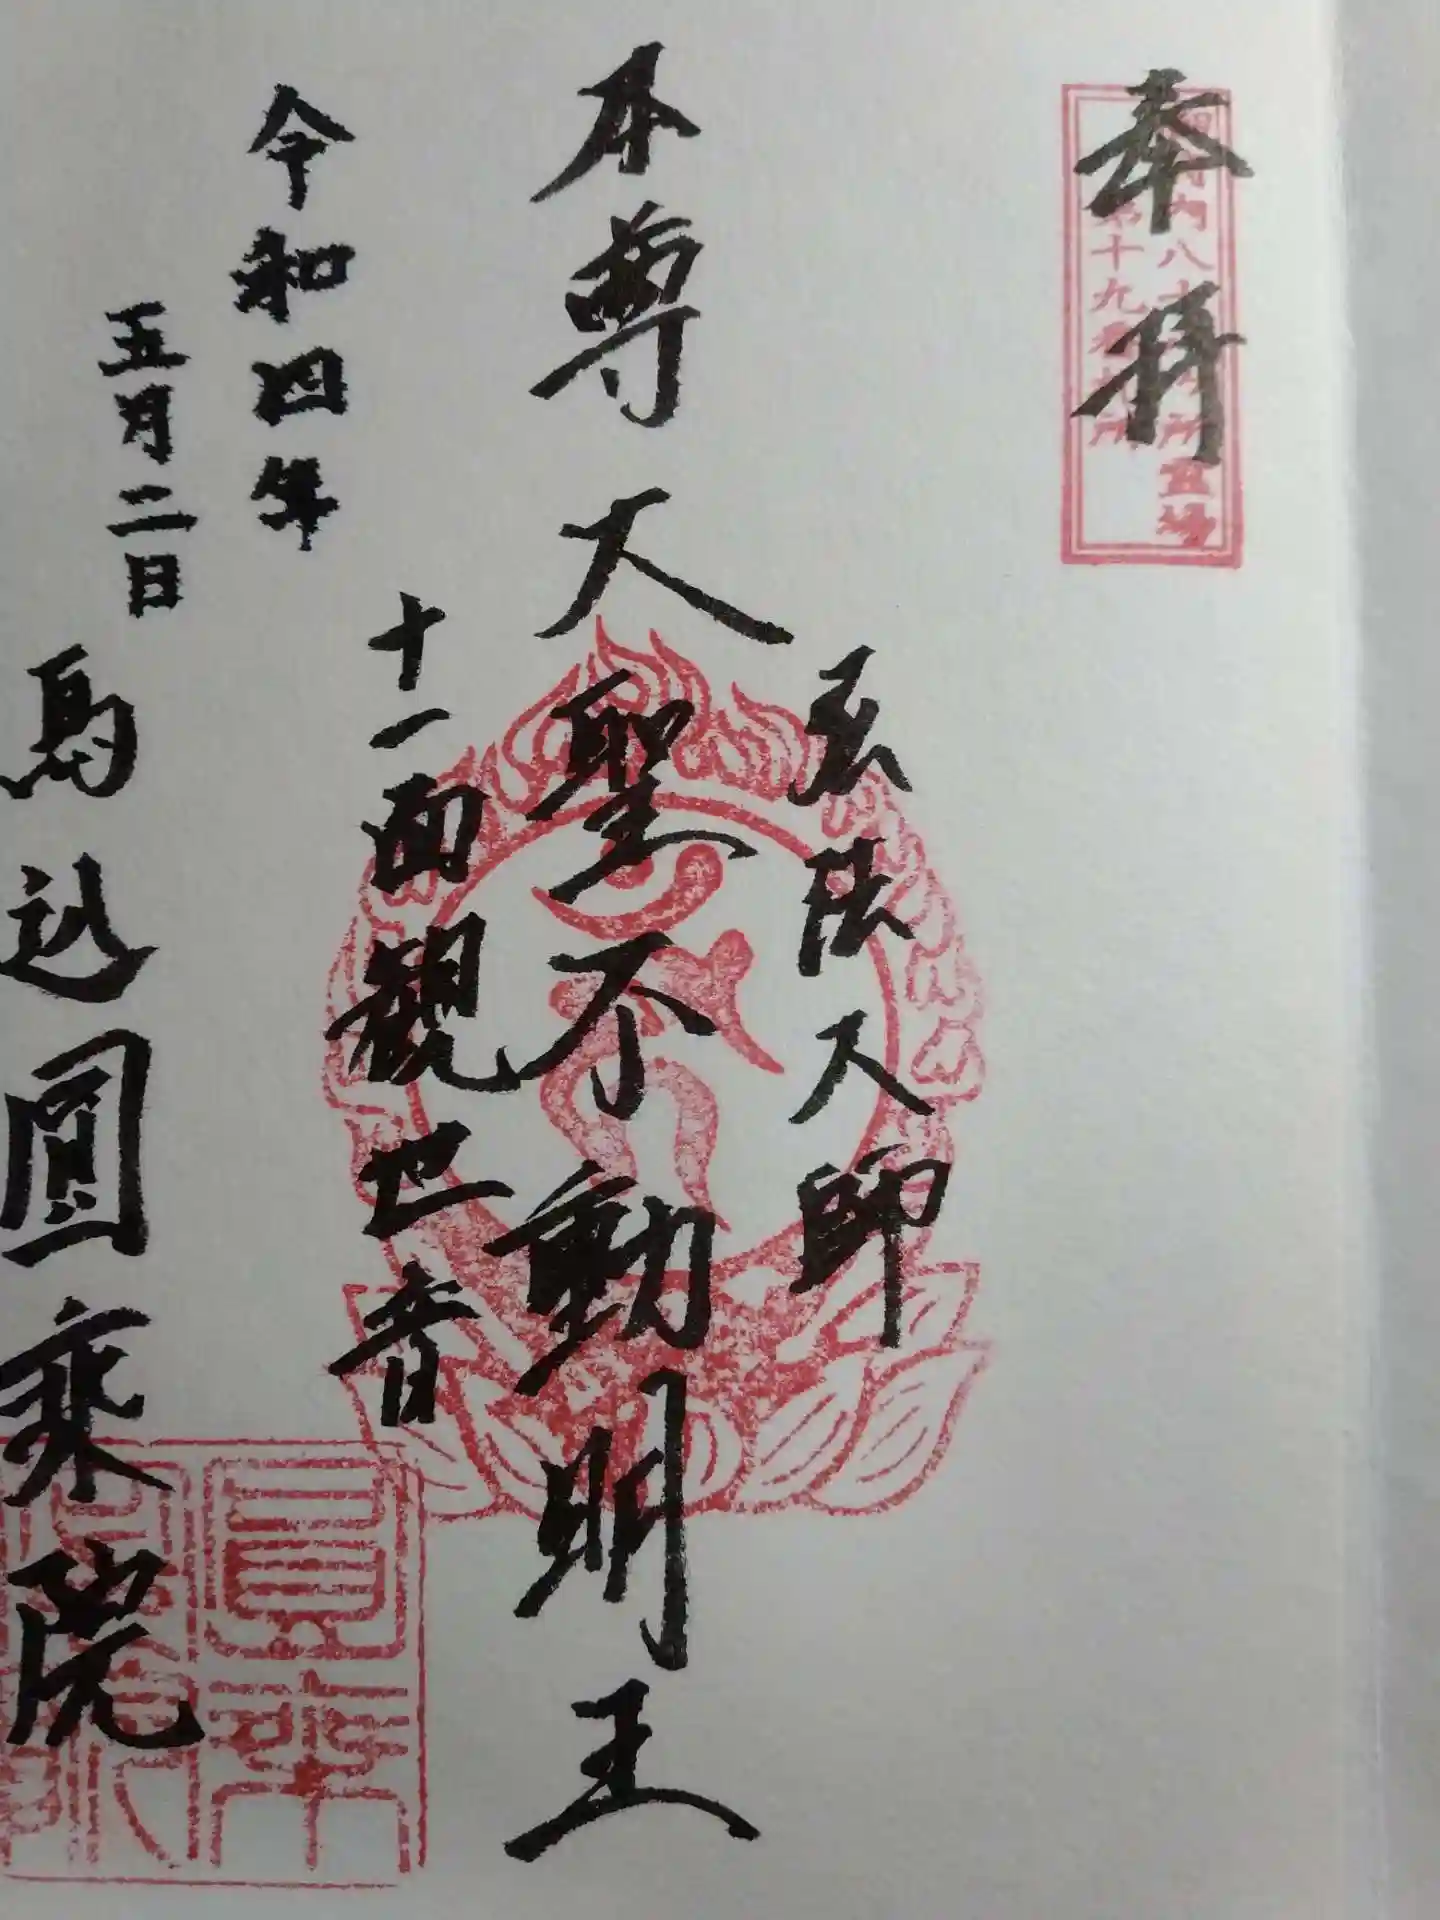 奉拝
八十
所霊場
第十九番札所
弘法大師
本尊大聖不動明王
十一面観世音
令和四年
五月二日
馬込圓乗院